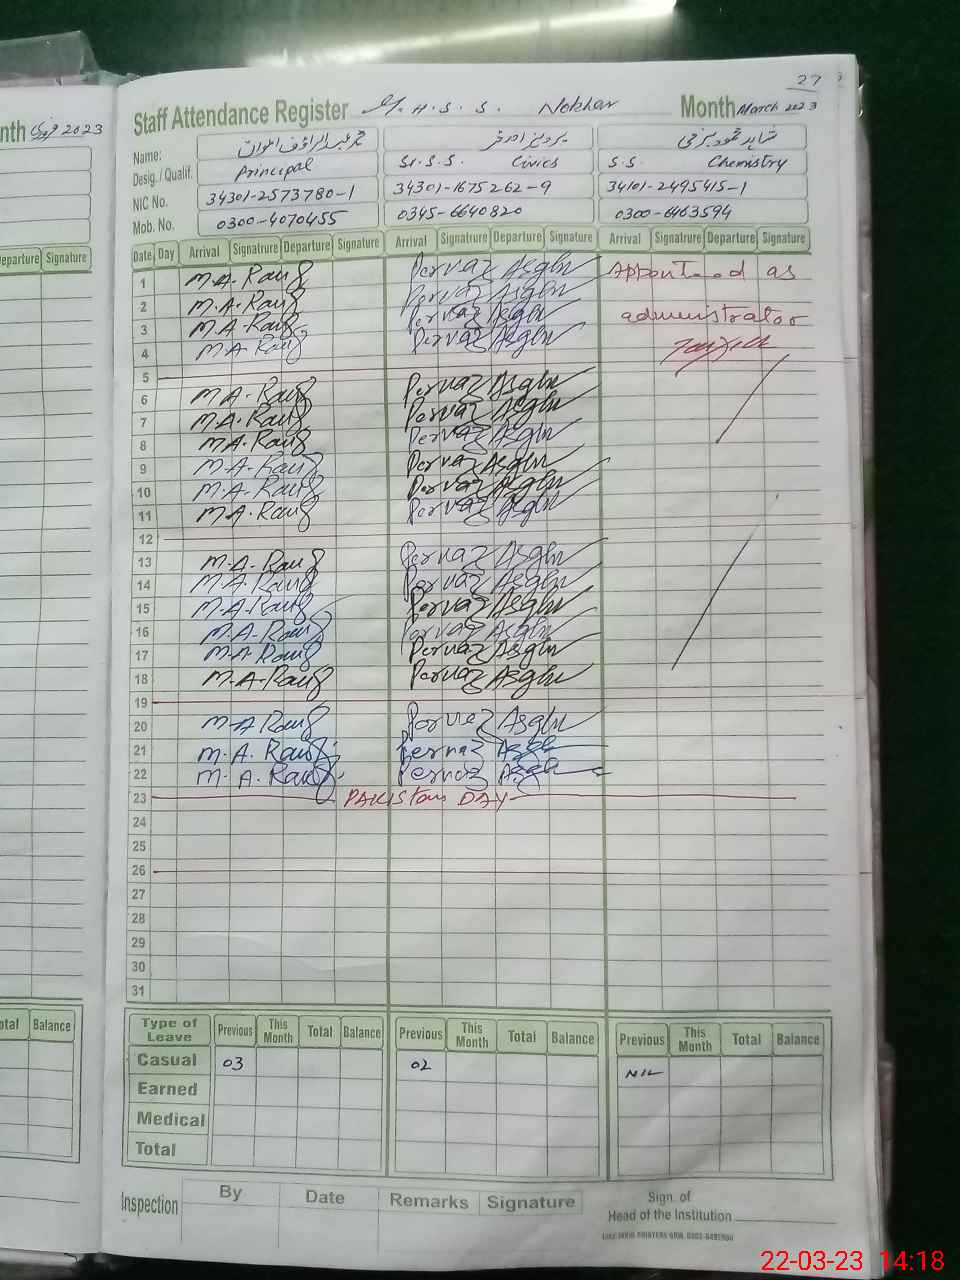 27
Staff Attendance Register G.H.S.S. Nokhar Month March 2023
nth 2023
Name: محمد عبدالرؤف اعوان
Desig. / Qualif. Principal S.S.S. Civics S.S. Chemistry
NIC No. 34301-2573780-1 34301-1675262-9 34101-2495415-1
Mob. No. 0300-4070455 0345-6640820 0300-6463594
eparture Signature Date Day Arrival Signature Departure Signature Arrival Signature Departure Signature Arrival Signature Departure Signature
1 M.A.Rauf Pervaz Asghr Appointed as
2 M.A.Rauf Pervaz Asghr
3 M.A.Rauf Pervaz Asghr administrator
4 M.A.Rauf Pervaz Asghr
5
6 M.A.Rauf Pervaz Asghr
7 M.A.Rauf Pervaz Asghr
8 M.A.Rauf Pervaz Asghr
9 M.A.Rauf Pervaz Asghr
10 M.A.Rauf Pervaz Asghr
11 M.A.Rauf Pervaz Asghr
12
13 M.A.Rauf Pervaz Asghr
14 M.A.Rauf Pervaz Asghr
15 M.A.Rauf Pervaz Asghr
16 M.A.Rauf Pervaz Asghr
17 M.A.Rauf Pervaz Asghr
18 M.A.Rauf Pervaz Asghr
19
20 M.A.Rauf Pervaz Asghr
21 M.A.Rauf Pervaz Asghr
22 M.A.Rauf Pervaz Asghr
23 PAKIStan DAY
24
25
26
27
28
29
30
31
otal Balance Type of Leave Previous This Month Total Balance Previous This Month Total Balance Previous This Month Total Balance
Casual 03 02 NIL
Earned
Medical
Total
Inspection By Date Remarks Signature Sign. of
Head of the Institution
22-03-23 14:18